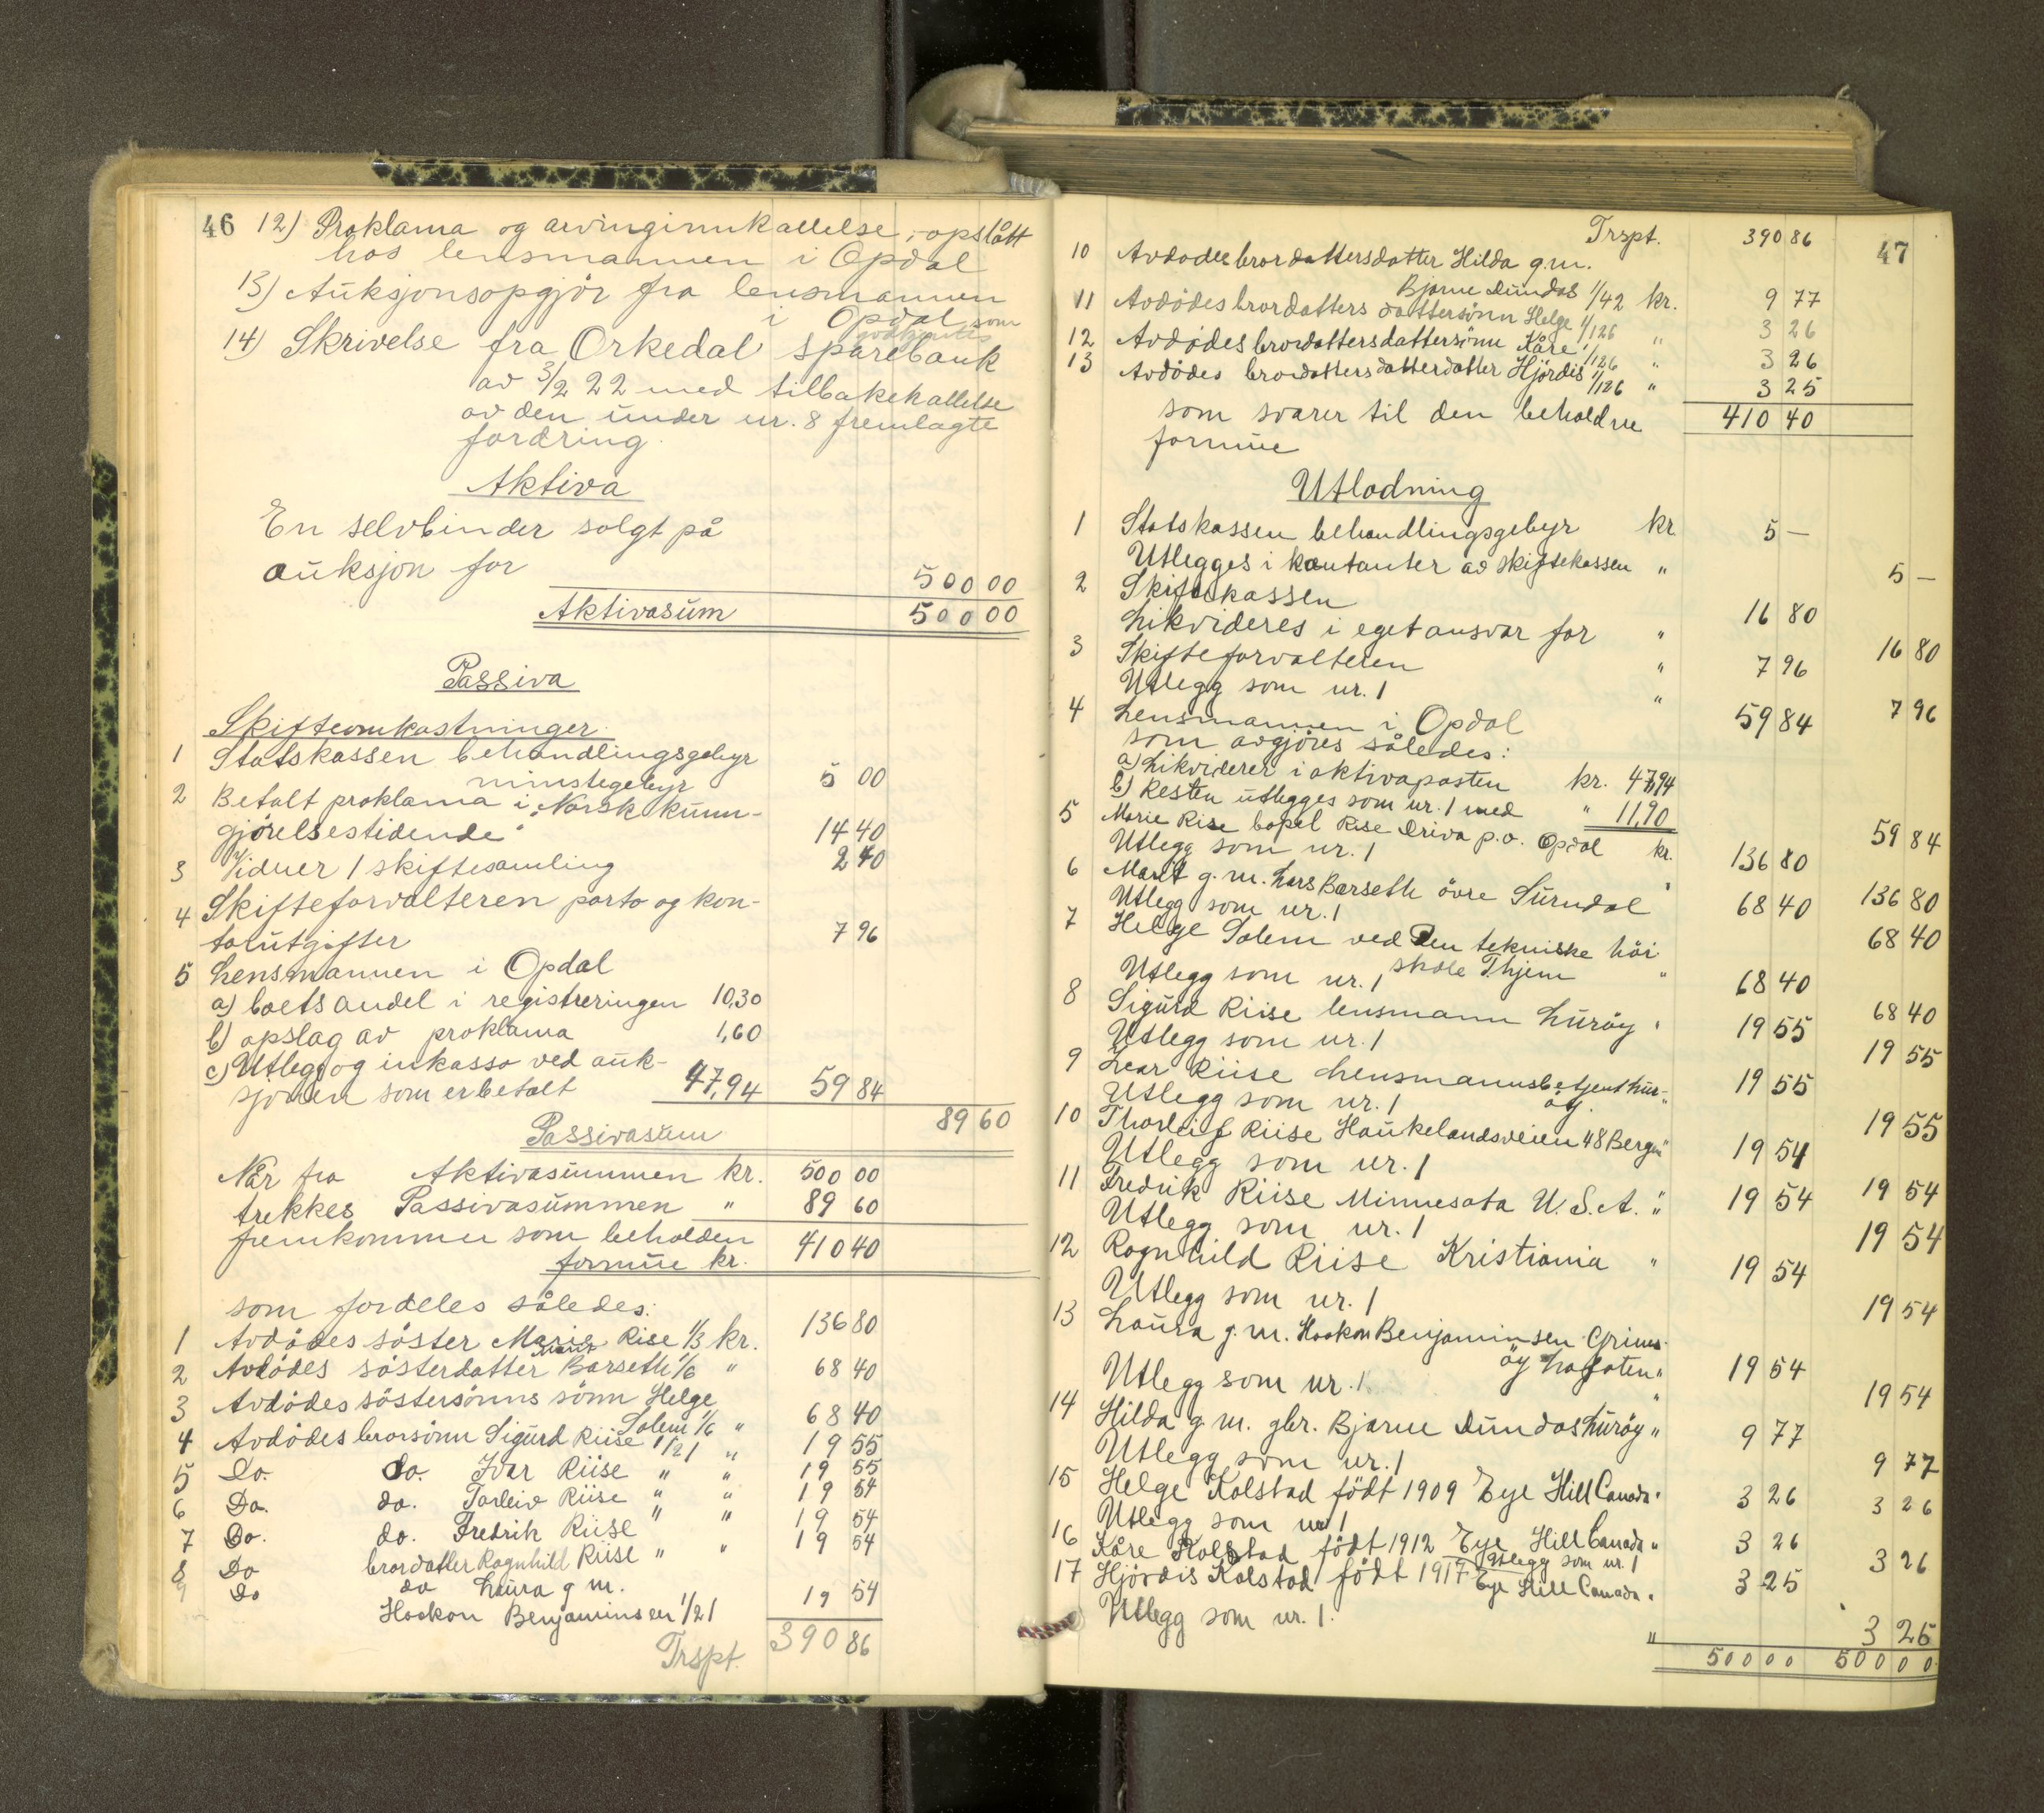 46 12) Proklama og arvinginnkallelse, opslått
hos lensmannen i Opdal
13) Auksjonsopgjör fra lensmannen
i Opdal som
godkjentes
14) Skrivelse fra Orkedal sparebank
av 3/2 22 med tilbakekallelse
av den under nr. 8 fremlagte
fordring.
Aktiva
En selvbinder solgt på
auksjon for 500 00
Aktivasum 500 00
Passiva
Skifteomkostninger
1 Statskassen behandlingsgebyr
minstegebyr 5 00
2 Betalt proklama i "Norsk kunn-
gjörelsestidende" 14 40
3 Vidner 1 skiftesamling 2 40
4 Skifteforvalteren porto og kon-
torutgifter 7 96
5 Lensmannen i Opdal
a) boets andel i registreringen 10,30
b) opslag av proklama 1,60
c) Utlegg og inkasso ved auk-
sjonen som er betalt 47,94 59 84
Passivasum 89 60
Når fra Aktivasummen kr. 500 00
trekkes Passivasummen " 89 60
fremkommer som beholden
formue kr. 410 40
som fordeles således:
1 Avdödes söster Marie Rise 1/3 kr. 136 80
2 Avdödes sösterdatter Marit Barseth 1/6 " 68 40
3 Avdödes söstersönns sönn Helge
Solem 1/6 " 68 40
4 Avdödes brorsönn Sigurd Riise 1/21 " 19 55
5 Do. do. Ivar Riise " " 19 55
6 Do. do. Torleiv Riise " " 19 54
7 Do. do. Fredrik Riise " " 19 54
8 Do brordatter Ragnhild Riise " " 19 54
9 Do do Laura g m.
Haakon Benjaminsen 1/21 19 54
Trspt. 390 86
Trspt. 390 86 47
10 Avdödes brordattersdatter Hilda g.m.
Bjarne Dundas 1/42 kr. 9 77
11 Avdödes brordatters dattersönn Helge 1/126 " 3 26
12 Avdödes brordattersdattersönn Kåre 1/126 " 3 26
13 Avdödes brordattersdatterdatter Hjördis 1/126 " 3 25
som svarer til den beholdne 410 40
formue
Utlodning
1 Statskassen behandlingsgebyr kr. 5 —
Utlegges i kontanter av skiftekassen " 5 —
2 Skiftekassen 16 80
Likvideres i eget ansvar for " 16 80
3 Skifteforvalteren " 7 96
Utlegg som nr. 1 " 7 96
4 Lensmannen i Opdal 59 84
som avgjöres således:
a) Likviderer i aktivaposten kr. 47,94
b) Resten utlegges som nr. 1 med " 11,90 59 84
5 Marie Rise bopel Rise Driva p.o. Opdal kr. 136 80
Utlegg som nr. 1 136 80
6 Marit g.m. Lars Barseth övre Surndal " 68 40
Utlegg som nr. 1 68 40
7 Helge Solem ved Den tekniske höi
skole Thjem " 68 40
Utlegg som nr. 1 68 40
8 Sigurd Riise lensmann Luröy " 19 55
Utlegg som nr. 1 19 55
9 Ivar Riise Lensmannsbetjent Lur-
öy. " 19 55
Utlegg som nr. 1 19 55
10 Thorleif Riise Haukelandsveien 48 Bergen " 19 54
Utlegg som nr. 1 19 54
11 Fredrik Riise Minnesota U.S.A. " 19 54
Utlegg som nr. 1 19 54
12 Ragnhild Riise Kristiania " 19 54
Utlegg som nr. 1 19 54
13 Laura g. m. Haakon Benjaminsen Grims-
öy Lofoten " 19 54
Utlegg som nr. 1 " 19 54
14 Hilda g. m. gbr. Bjarne Dundas Luröy " 9 77
Utlegg som nr. 1 9 77
15 Helge Kolstad födt 1909 Eye Hill Canada " 3 26
Utlegg som nr 1 3 26
16 Kåre Kolstad födt 1912 Eye Hill Canada " 3 26
Utlegg som nr. 1 3 26
17 Hjördis Kolstad födt 1917 Eye Hill Canada " 3 25
Utlegg som nr. 1. 3 25
" 500 00 500 00